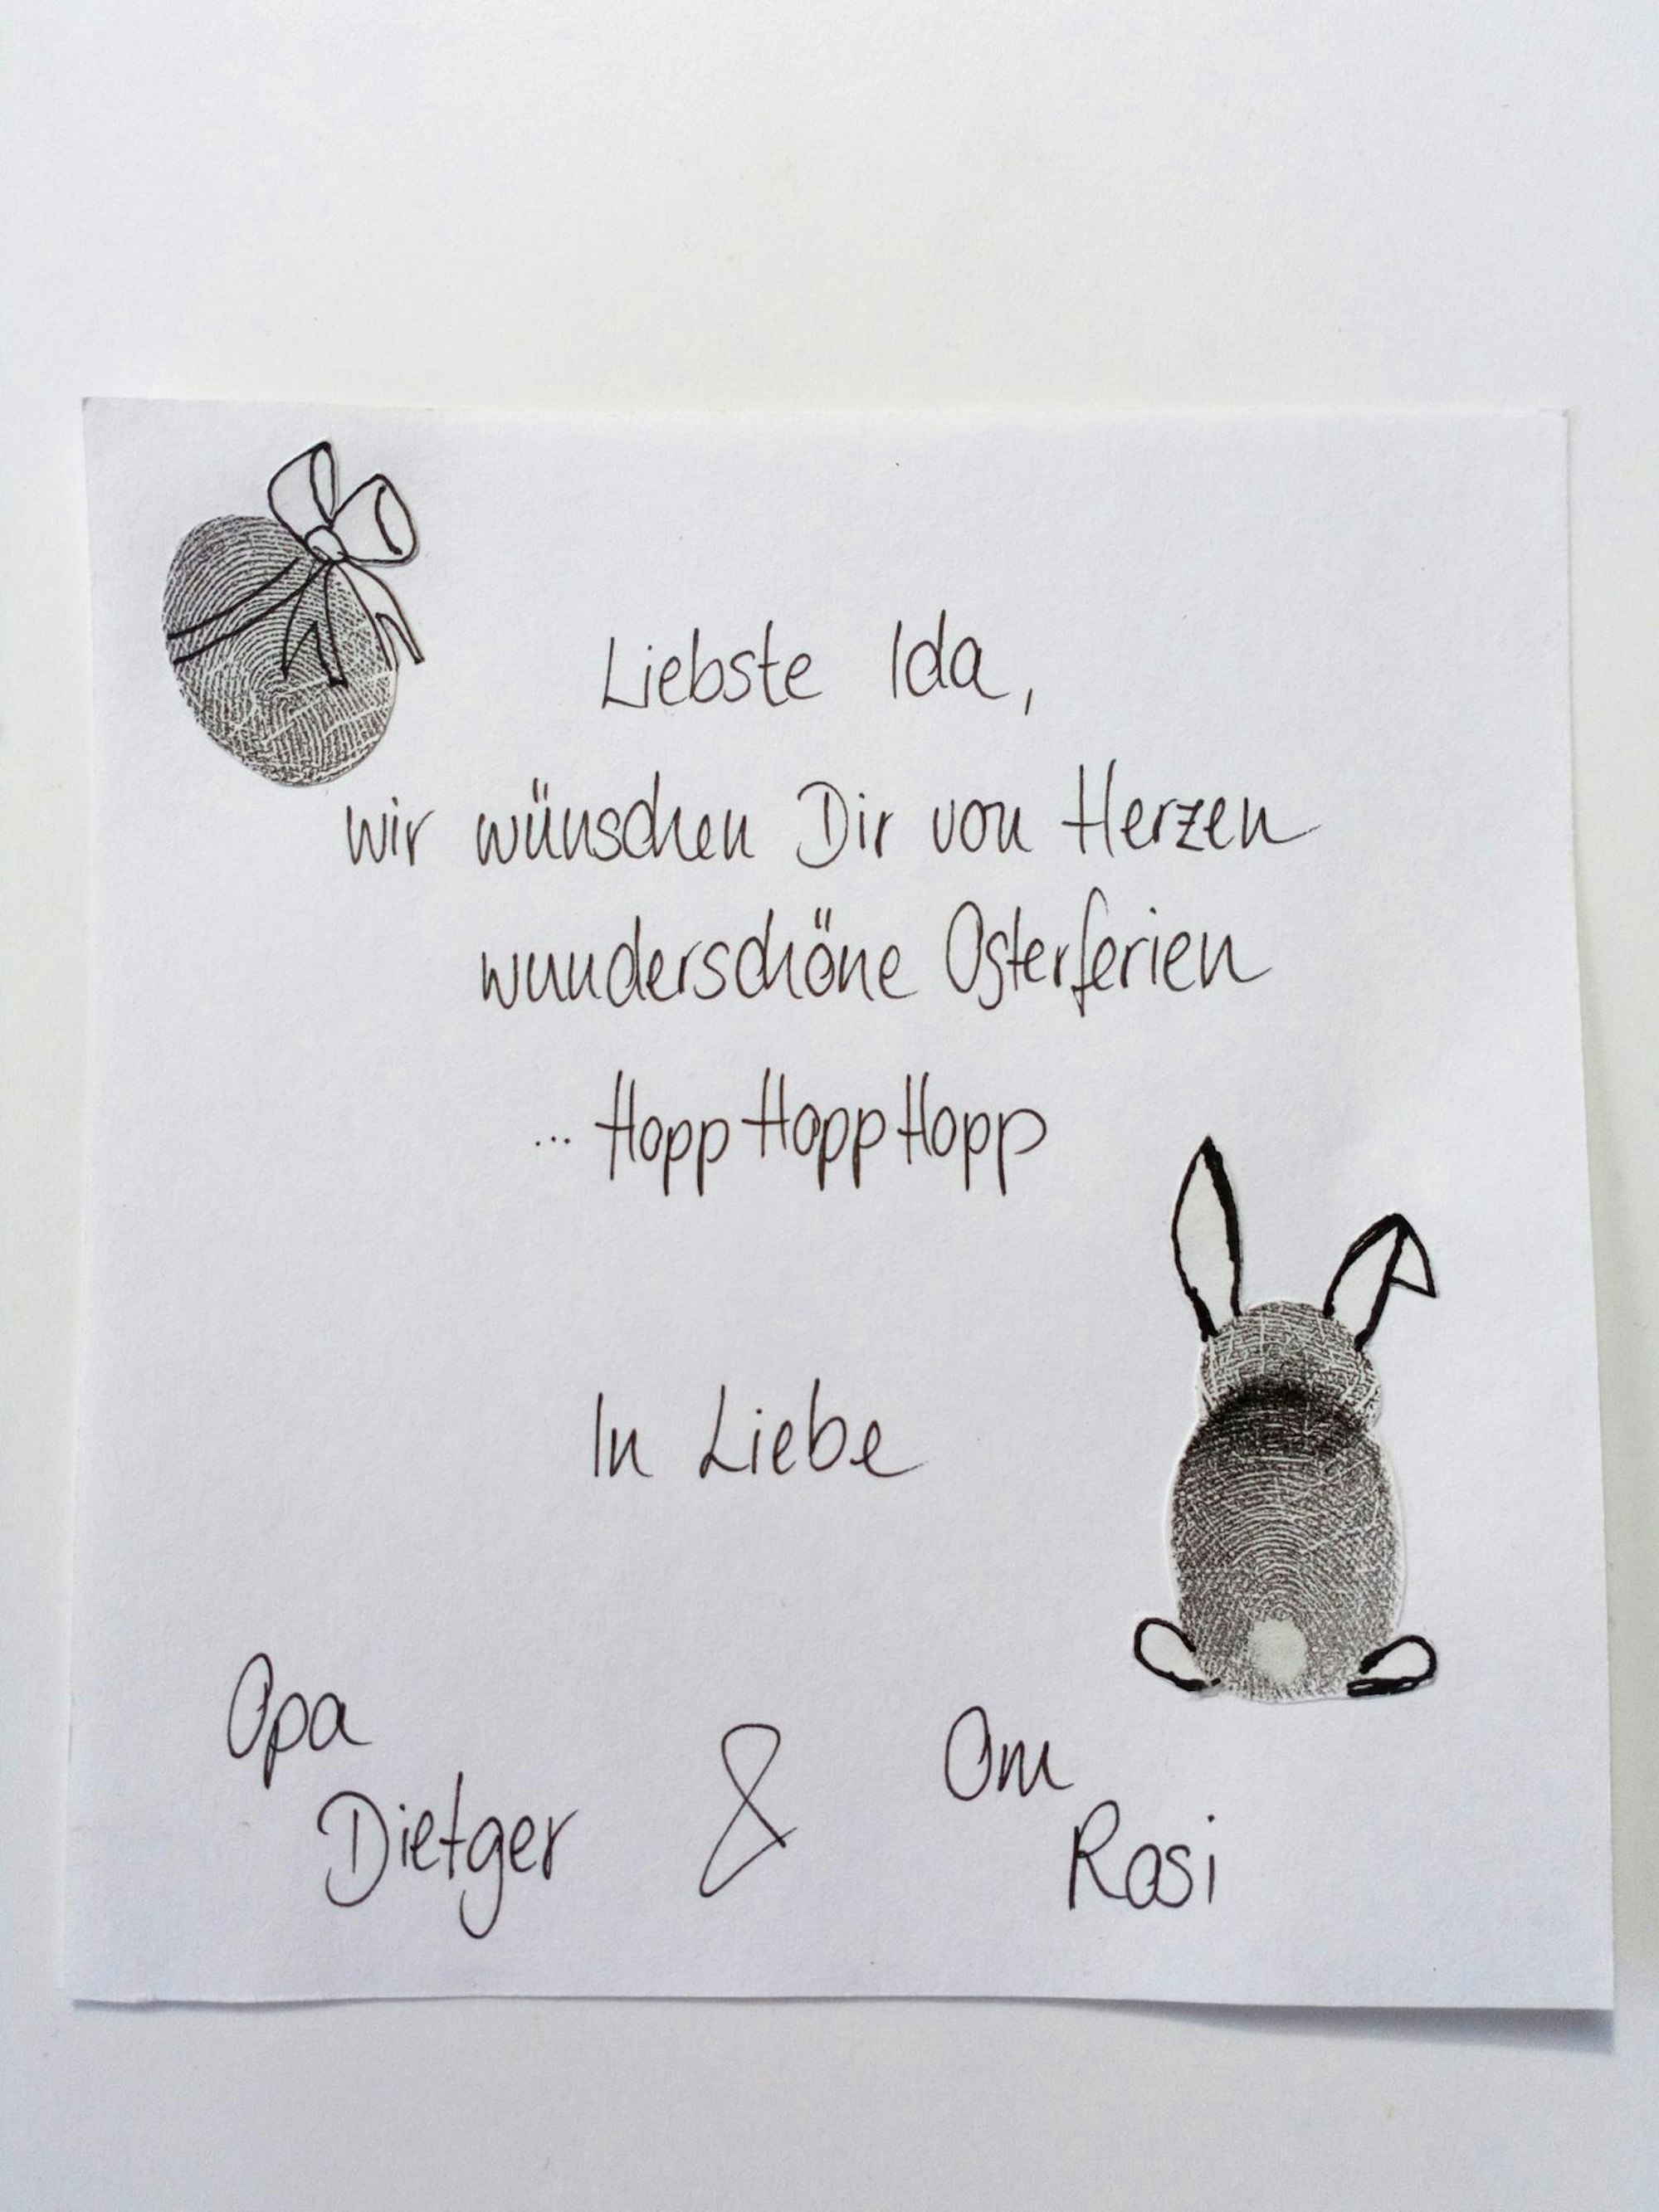 Liebste Ida,
wir wünschen Dir von Herzen
wunderschöne Osterferien
... Hopp Hopp Hopp
In Liebe
Opa
Dietger & Om
Rosi